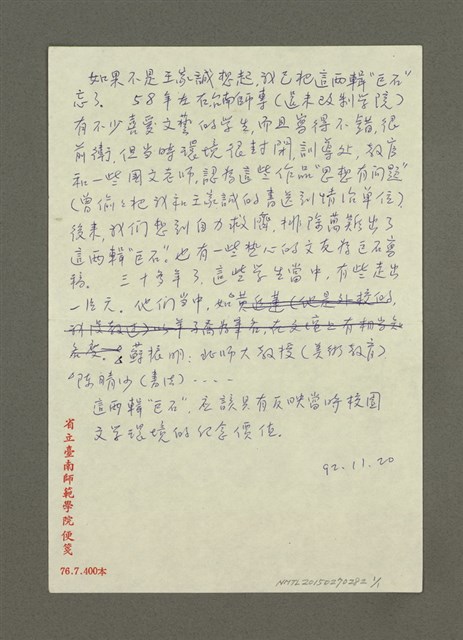 如果不是王家誠想起,我已把這两輯“巨石”
忘了。 58年左右台南師專(还未改制学院)
有不少喜爱文藝的学生,而且寫得不錯,很
前衛,但当時環境很封閉,訓導处,教官
和一些国文老师,認為這些作品“思想有问题”
(曾偷偷把我和王家誠的書送到情治单位)
後來,我们想到自力救濟,排除萬難出了
這两輯“巨石”。也有一些热心的文友為巨石寫
稿。 三十多年了,這些学生當中,有些走出
一片天。他们当中,如
蘇振明:北师大教授(美術教育)
陳晴沙(書法)----
這两輯“巨石”,应該只有反映當時校園
文学環境的紀念價值。
92.11.20
省立臺南師範學院便箋
76.7.400本
NMTL20150270282 1/1